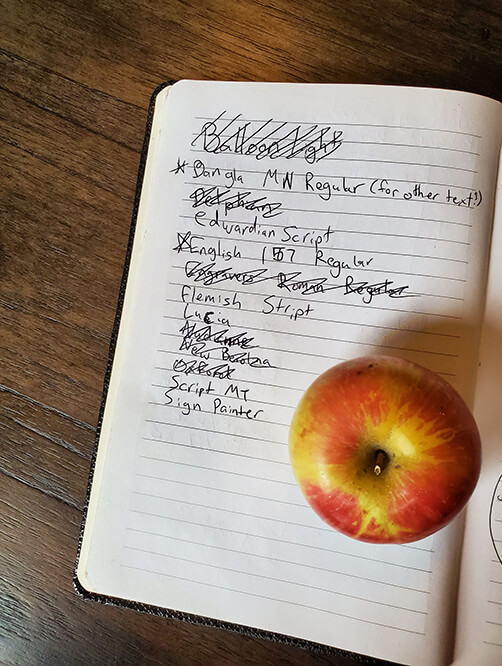 Balloon Night
* Bangla MN Regular (for other text?)
edwardian Script
* English 157 Regular
Engravers Roman Regular
Flemish Stript
Lucia
New Berolina
Script MT
Sign Painter